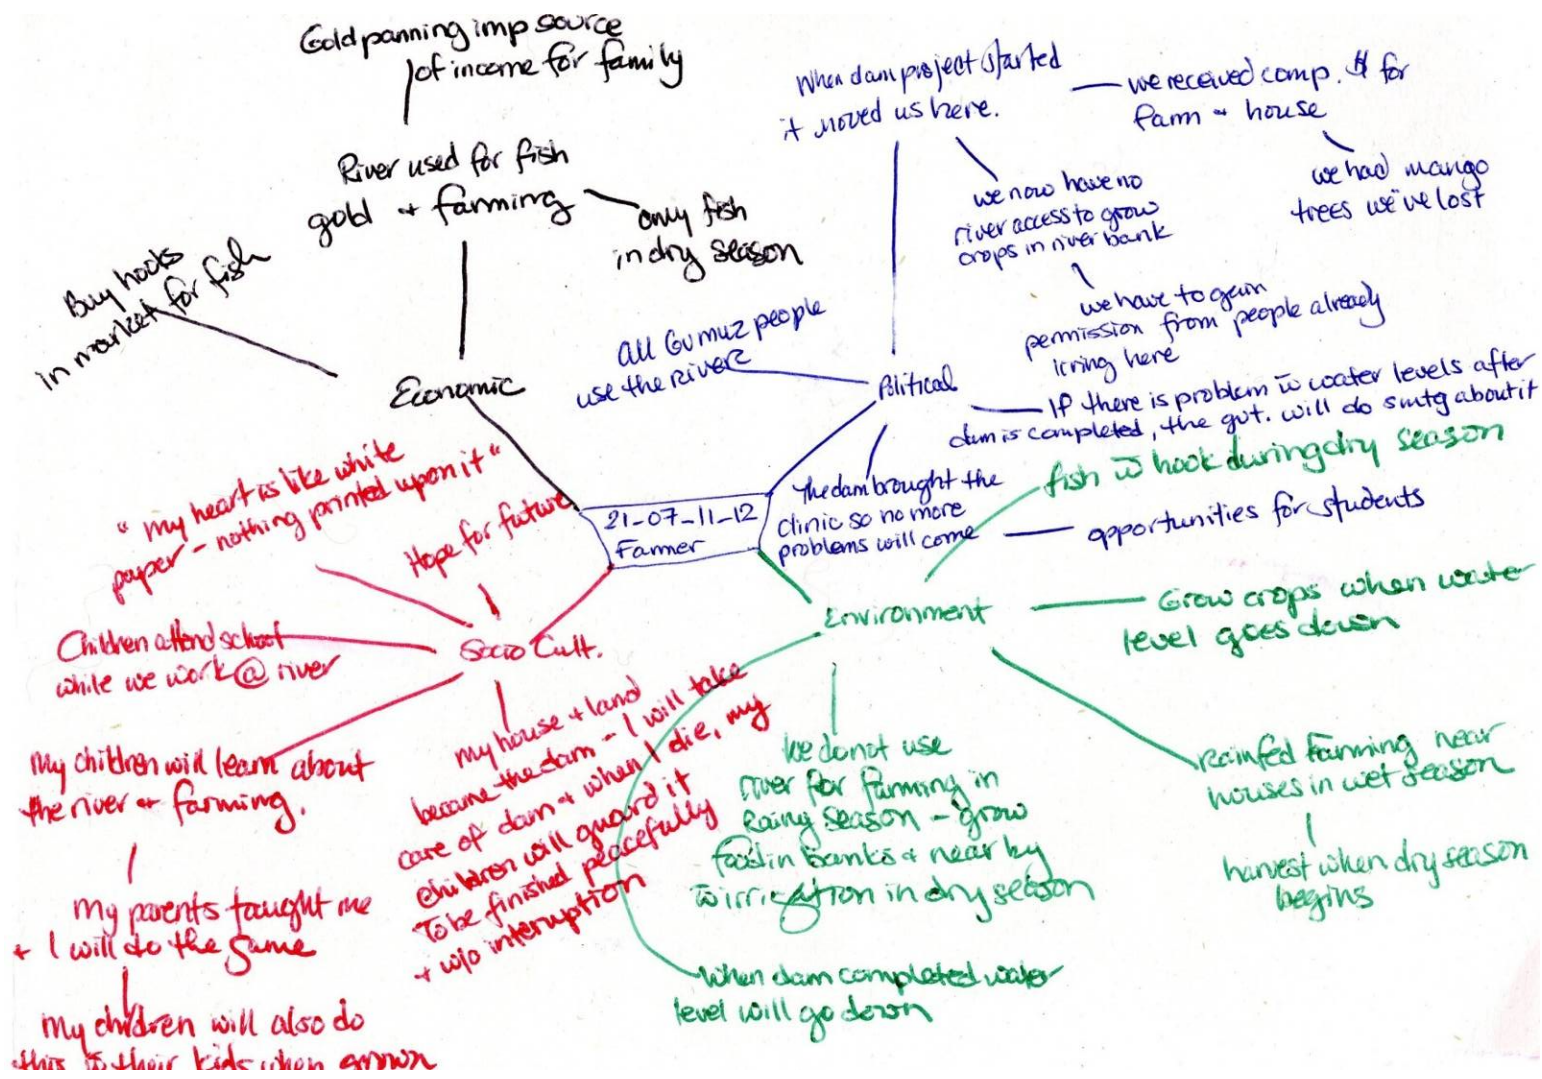 Gold panning imp source
of income for family
River used for fish
gold + farming
only fish
in dry season
Buy hooks
in market for fish
Economic
When dam project started
it moved us here.
we received comp. $ for
farm + house
we had mango
trees we've lost
we now have no
river access to grow
crops in river bank
we have to gain
permission from people already
living here
all Gumuz people
use the river
Political
If there is problem w̄ water levels after
dam is completed, the gvt. will do smtg about it
The dam brought the
clinic so no more
problems will come
opportunities for students
21-07-11-12
Farmer
"my heart is like white
paper - nothing printed upon it"
Hope for future
Socio Cult.
Children attend school
while we work @ river
My children will learn about
the river + farming.
My parents taught me
+ I will do the same
My children will also do
this to their kids when grown
my house + land
became the dam - I will take
care of dam + when I die, my
children will guard it
To be finished peacefully
+ w/o interruption
Environment
fish w̄ hook during dry season
Grow crops when water
level goes down
Rainfed Farming near
houses in wet season
harvest when dry season
begins
We do not use
river for farming in
Rainy Season - grow
food in banks + near by
w̄ irrigation in dry season
When dam completed water
level will go down